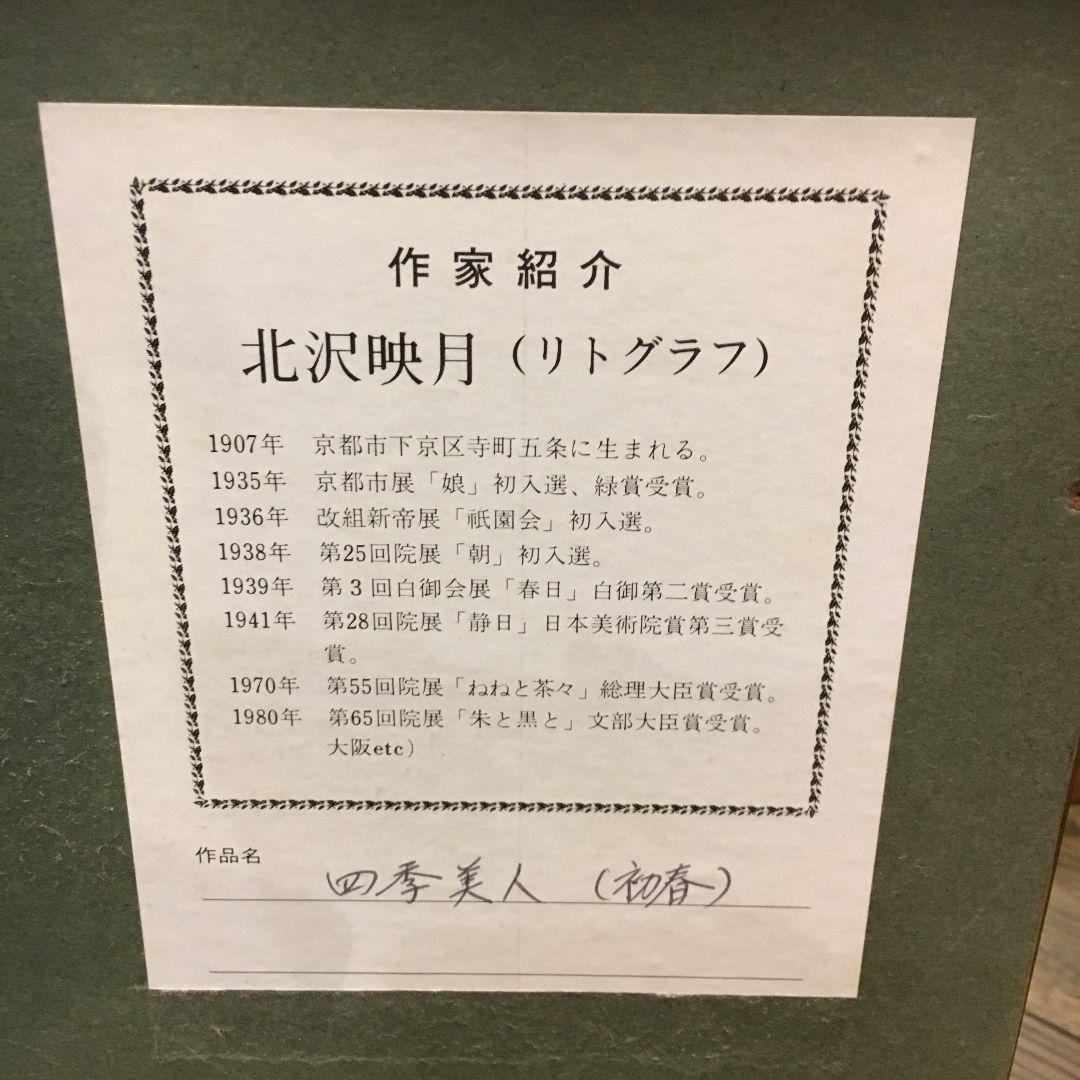 作家紹介
北沢映月（リトグラフ）
1907年 京都市下京区寺町五条に生まれる。
1935年 京都市展「娘」初入選、緑賞受賞。
1936年 改組新帝展「祇園会」初入選。
1938年 第25回院展「朝」初入選。
1939年 第3回白御会展「春日」白御第二賞受賞。
1941年 第28回院展「静日」日本美術院賞第三賞受
賞。
1970年 第55回院展「ねねと茶々」総理大臣賞受賞。
1980年 第65回院展「朱と黒と」文部大臣賞受賞。
大阪etc）
作品名
四季美人（初春）